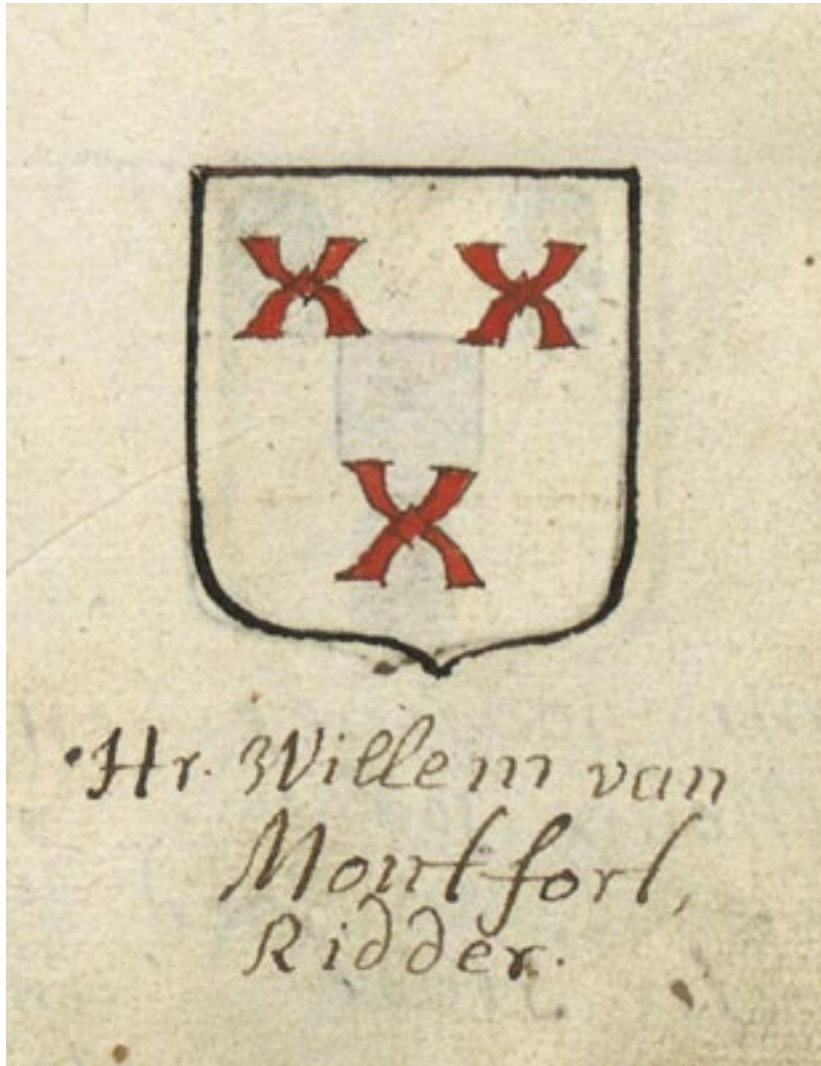 Hr. Willem van
Montfort,
Ridder.